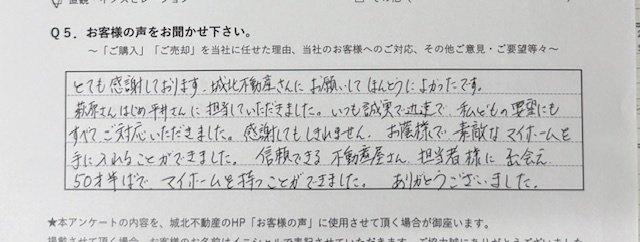 Q5. お客様の声をお聞かせ下さい。
～「ご購入」「ご売却」を当社に任せた理由、当社のお客様へのご対応、その他ご意見・ご要望等々～
とても感謝しております。城北不動産さんにお願いしてほんとうによかったです。
萩原さんはじめ平井さんに担当していただきました。いつも誠実で迅速で、私どもの要望にも
すべてご対応いただきました。感謝してもしきれません。お蔭様で素敵なマイホームを
手に入れることができました。信頼できる不動産屋さん、担当者様に出会え、
50才半ばでマイホームを持つことができました。ありがとうございました。
★本アンケートの内容を、城北不動産のHP「お客様の声」に使用させて頂く場合が御座います。